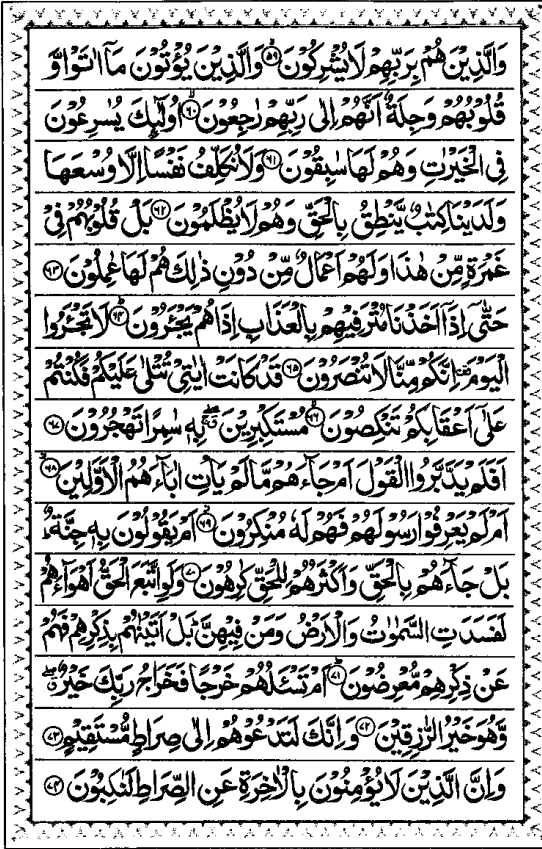 وَالَّذِيْنَ هُمْ بِرَبِّهِمْ لَا يُشْرِكُوْنَ ﴿۵۹﴾ وَالَّذِيْنَ يُؤْتُوْنَ مَاۤ اٰتَوْا وَّ
قُلُوْبُهُمْ وَجِلَةٌ اَنَّهُمْ اِلٰى رَبِّهِمْ رٰجِعُوْنَ ﴿۶۰﴾ اُولٰٓئِكَ يُسٰرِعُوْنَ
فِى الْخَيْرٰتِ وَهُمْ لَهَا سٰبِقُوْنَ ﴿۶۱﴾ وَلَا نُكَلِّفُ نَفْسًا اِلَّا وُسْعَهَا
وَلَدَيْنَا كِتٰبٌ يَّنْطِقُ بِالْحَقِّ وَهُمْ لَا يُظْلَمُوْنَ ﴿۶۲﴾ بَلْ قُلُوْبُهُمْ فِىْ
غَمْرَةٍ مِّنْ هٰذَا وَلَهُمْ اَعْمَالٌ مِّنْ دُوْنِ ذٰلِكَ هُمْ لَهَا عٰمِلُوْنَ ﴿۶۳﴾
حَتّٰۤى اِذَاۤ اَخَذْنَا مُتْرَفِيْهِمْ بِالْعَذَابِ اِذَا هُمْ يَجْئَرُوْنَ ﴿۶۴﴾ لَا تَجْئَرُوا
الْيَوْمَ اِنَّكُمْ مِّنَّا لَا تُنْصَرُوْنَ ﴿۶۵﴾ قَدْ كَانَتْ اٰيٰتِىْ تُتْلٰى عَلَيْكُمْ فَكُنْتُمْ
عَلٰۤى اَعْقَابِكُمْ تَنْكِصُوْنَ ﴿۶۶﴾ مُسْتَكْبِرِيْنَ بِهٖ سٰمِرًا تَهْجُرُوْنَ ﴿۶۷﴾
اَفَلَمْ يَدَّبَّرُوا الْقَوْلَ اَمْ جَآءَهُمْ مَّا لَمْ يَاْتِ اٰبَآءَهُمُ الْاَوَّلِيْنَ ﴿۶۸﴾
اَمْ لَمْ يَعْرِفُوْا رَسُوْلَهُمْ فَهُمْ لَهٗ مُنْكِرُوْنَ ﴿۶۹﴾ اَمْ يَقُوْلُوْنَ بِهٖ جِنَّةٌ
بَلْ جَآءَهُمْ بِالْحَقِّ وَاَكْثَرُهُمْ لِلْحَقِّ كٰرِهُوْنَ ﴿۷۰﴾ وَلَوِ اتَّبَعَ الْحَقُّ اَهْوَآءَهُمْ
لَفَسَدَتِ السَّمٰوٰتُ وَالْاَرْضُ وَمَنْ فِيْهِنَّ بَلْ اَتَيْنٰهُمْ بِذِكْرِهِمْ فَهُمْ
عَنْ ذِكْرِهِمْ مُّعْرِضُوْنَ ﴿۷۱﴾ اَمْ تَسْئَلُهُمْ خَرْجًا فَخَرَاجُ رَبِّكَ خَيْرٌ
وَّهُوَ خَيْرُ الرّٰزِقِيْنَ ﴿۷۲﴾ وَاِنَّكَ لَتَدْعُوْهُمْ اِلٰى صِرَاطٍ مُّسْتَقِيْمٍ ﴿۷۳﴾
وَاِنَّ الَّذِيْنَ لَا يُؤْمِنُوْنَ بِالْاٰخِرَةِ عَنِ الصِّرَاطِ لَنٰكِبُوْنَ ﴿۷۴﴾